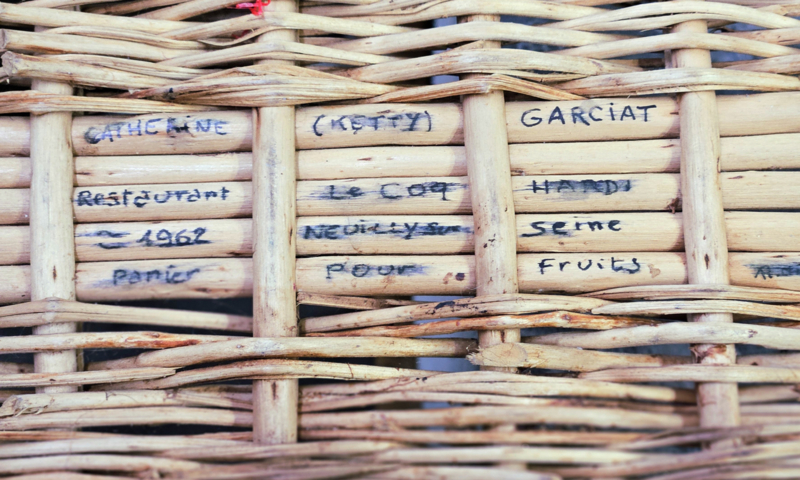 CATHERINE (KETTY) GARCiAT
Restaurant Le COQ HARDi
≃ 1962 NEUiLLY sur seine
panier POUR fruits